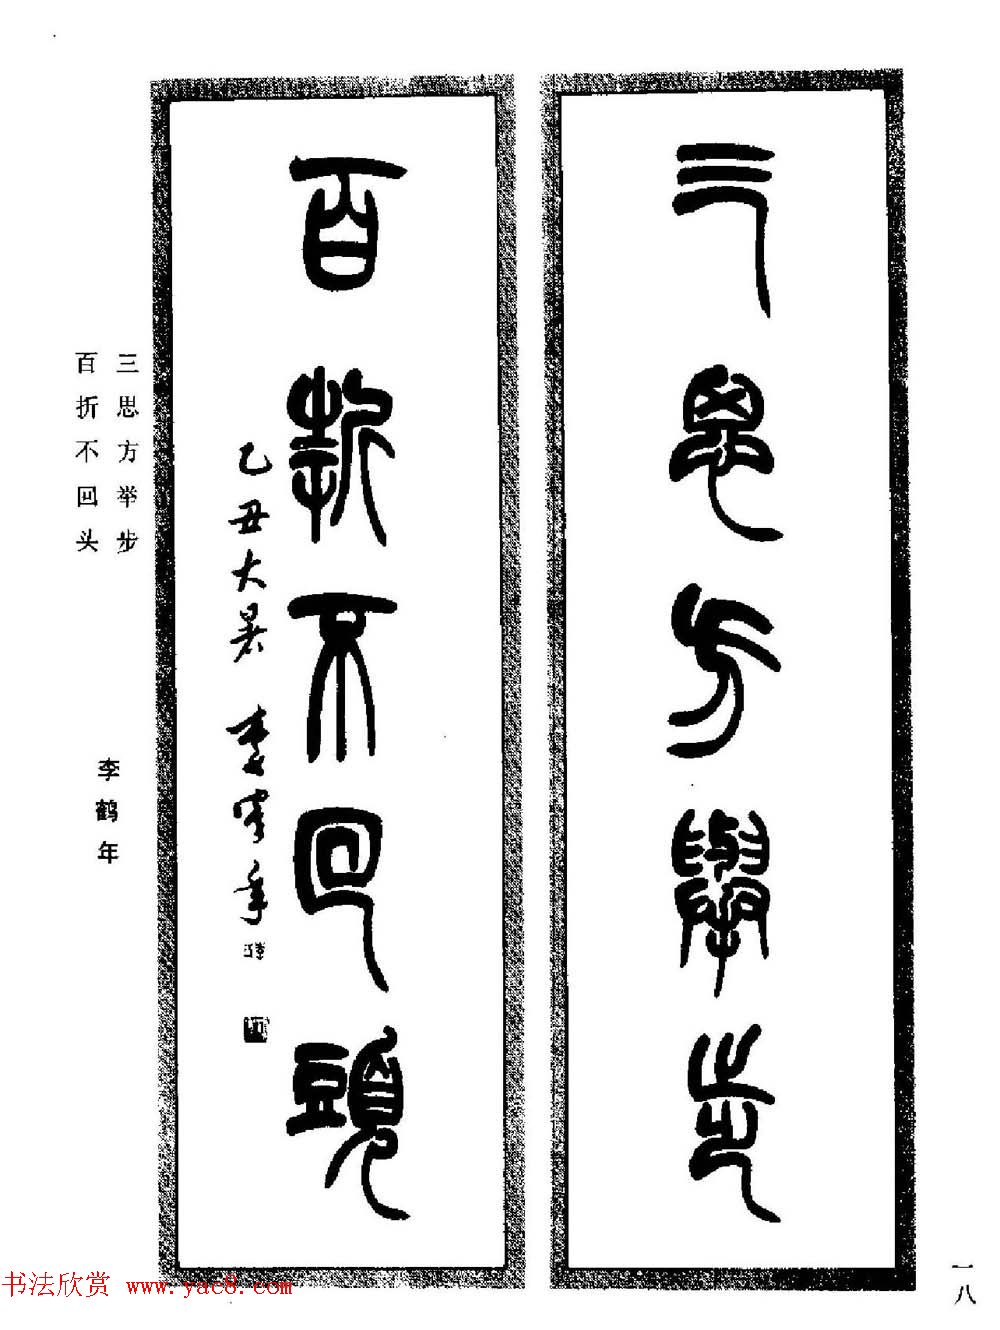 三思方舉步
百折不回頭
乙丑大暑 李鹤年
三思方举步
百折不回头
李鹤年
一八
书法欣赏 www.yac8.com